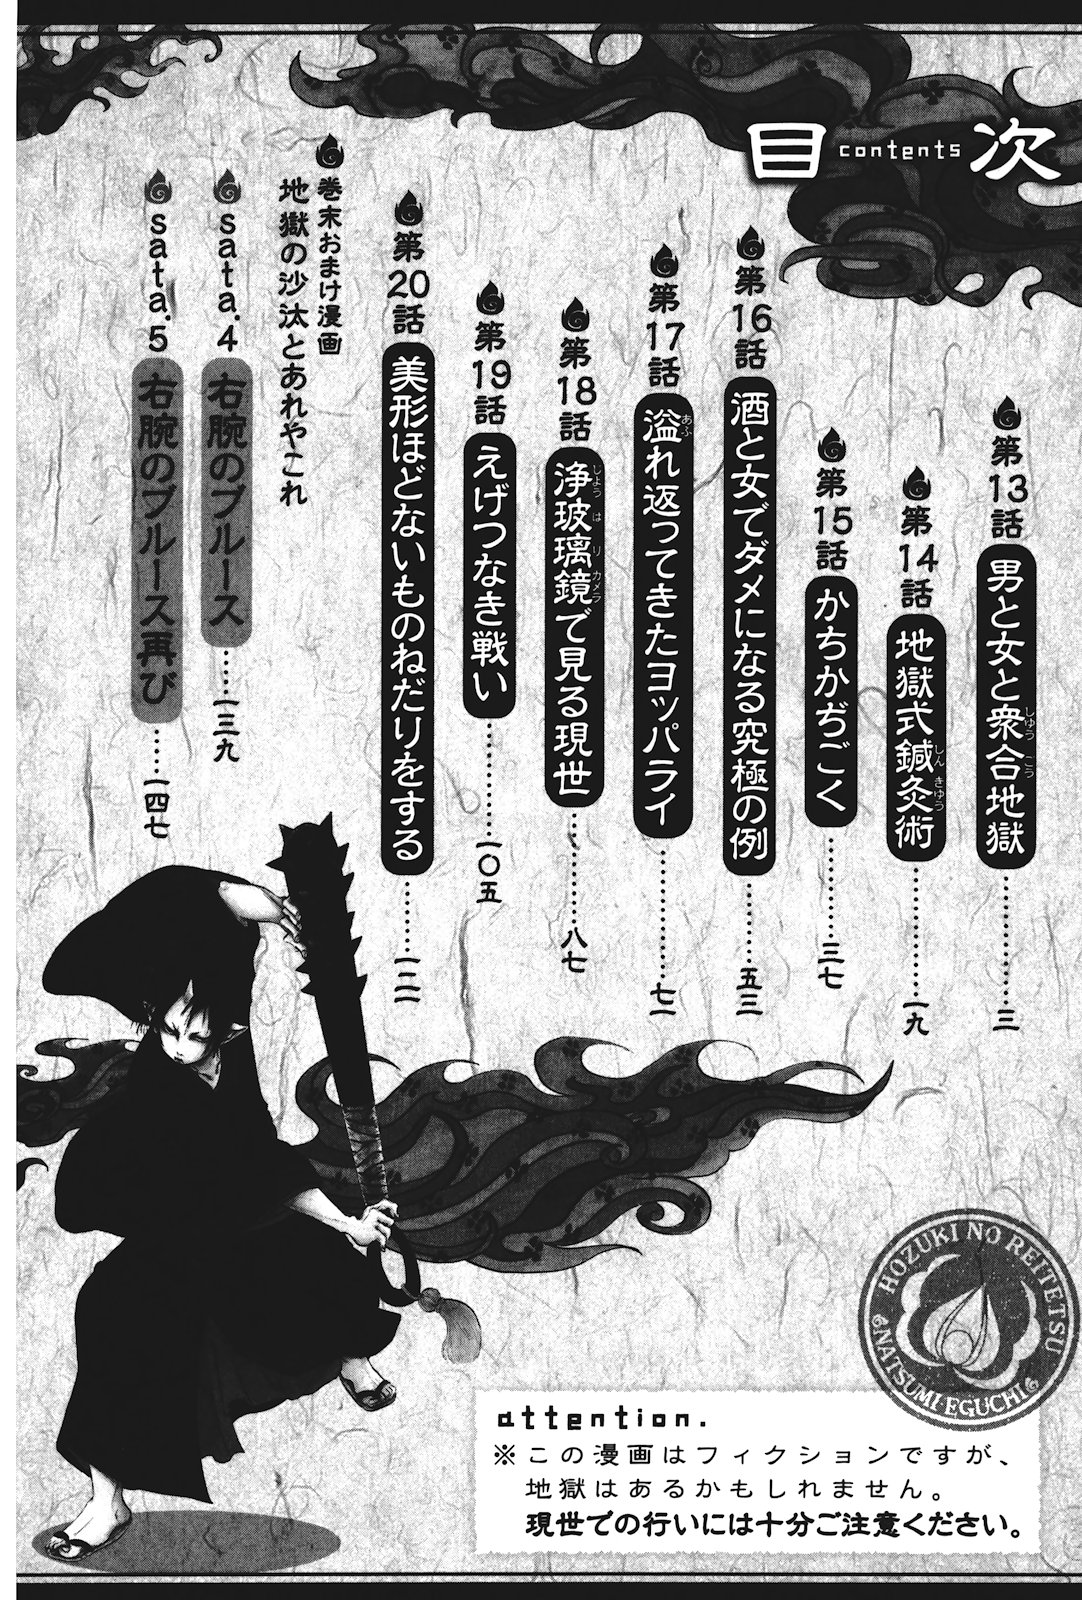 目次
contents
第13話 男と女と衆合地獄……三
第14話 地獄式鍼灸術……一九
第15話 かちかぢごく……三七
第16話 酒と女でダメになる究極の例……五三
第17話 溢れ返ってきたヨッパライ……七一
第18話 浄玻璃鏡で見る現世……八七
第19話 えげつなき戦い……一〇五
第20話 美形ほどないものねだりをする……一二一
巻末おまけ漫画
地獄の沙汰とあれやこれ
sata.4 右腕のブルース……一三九
sata.5 右腕のブルース再び……一四七
HOZUKI NO REITETSU
NATSUMI EGUCHI
attention.
※この漫画はフィクションですが、
地獄はあるかもしれません。
現世での行いには十分ご注意ください。